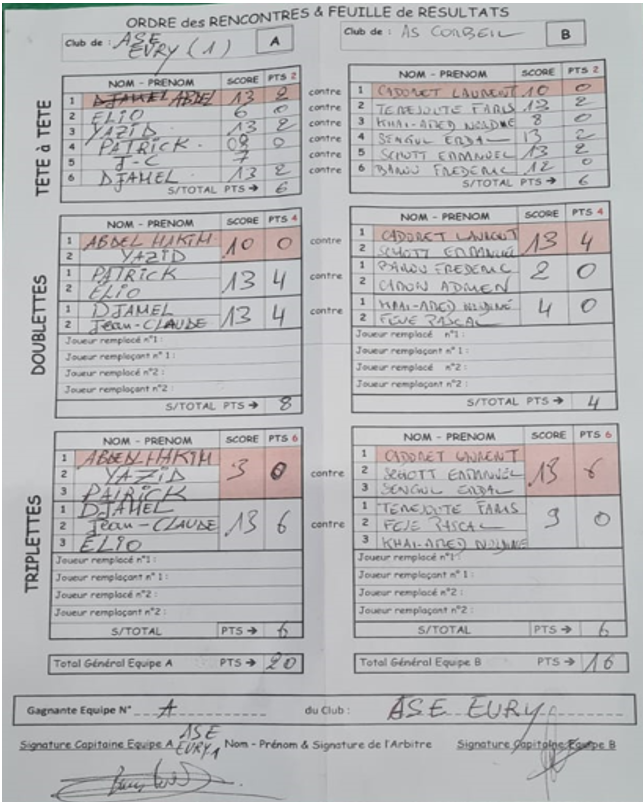 ORDRE des RENCONTRES & FEUILLE de RESULTATS
Club de : ASE EVRY (1) A
Club de : AS CORBEIL B
TETE à TETE
NOM - PRENOM SCORE PTS 2
1 ABDEL 13 2
2 ELIO 6 0
3 YAZID 13 2
4 PATRICK 08 0
5 J-C 7
6 DJAMEL 13 2
S/TOTAL PTS → 6
contre
contre
contre
contre
contre
contre
NOM - PRENOM SCORE PTS 2
1 CADORET LAURENT 10 0
2 FARIS 13 2
3 8 0
4 SENGUL ERDAL 13 2
5 SCHOTT EMMANUEL 13 2
6 BAROU FREDERIC 12 0
S/TOTAL PTS → 6
DOUBLETTES
NOM - PRENOM SCORE PTS 4
1 ABDEL HAKIM 10 0
2 YAZID
1 PATRICK 13 4
2 ELIO
1 DJAMEL 13 4
2 Jean-CLAUDE
Joueur remplacé n°1 :
Joueur remplaçant n° 1 :
Joueur remplacé n°2 :
Joueur remplaçant n°2 :
S/TOTAL PTS → 8
contre
contre
contre
NOM - PRENOM SCORE PTS 4
1 CADORET LAURENT 13 4
2 SCHOTT EMMANUEL
1 BAROU FREDERIC 2 0
2 CARON
1 4 0
2 PASCAL
Joueur remplacé n°1 :
Joueur remplaçant n° 1 :
Joueur remplacé n°2 :
Joueur remplaçant n°2 :
S/TOTAL PTS → 4
TRIPLETTES
NOM - PRENOM SCORE PTS 6
1 ABDEL HAKIM 3 0
2 YAZID
3 PATRICK
1 DJAMEL 13 6
2 Jean-CLAUDE
3 ELIO
Joueur remplacé n°1 :
Joueur remplaçant n° 1 :
Joueur remplacé n°2 :
Joueur remplaçant n°2 :
S/TOTAL PTS → 6
contre
contre
NOM - PRENOM SCORE PTS 6
1 CADORET LAURENT 13 6
2 SCHOTT EMMANUEL
3 SENGUL ERDAL
1 FARIS 9 0
2 PASCAL
3
Joueur remplacé n°1 :
Joueur remplaçant n° 1 :
Joueur remplacé n°2 :
Joueur remplaçant n°2 :
S/TOTAL PTS → 6
Total Général Equipe A PTS → 20
Total Général Equipe B PTS → 16
Gagnante Equipe N° A du Club : ASE EVRY
Signature Capitaine Equipe A ASE EVRY 1
Nom - Prénom & Signature de l'Arbitre
Signature Capitaine Equipe B